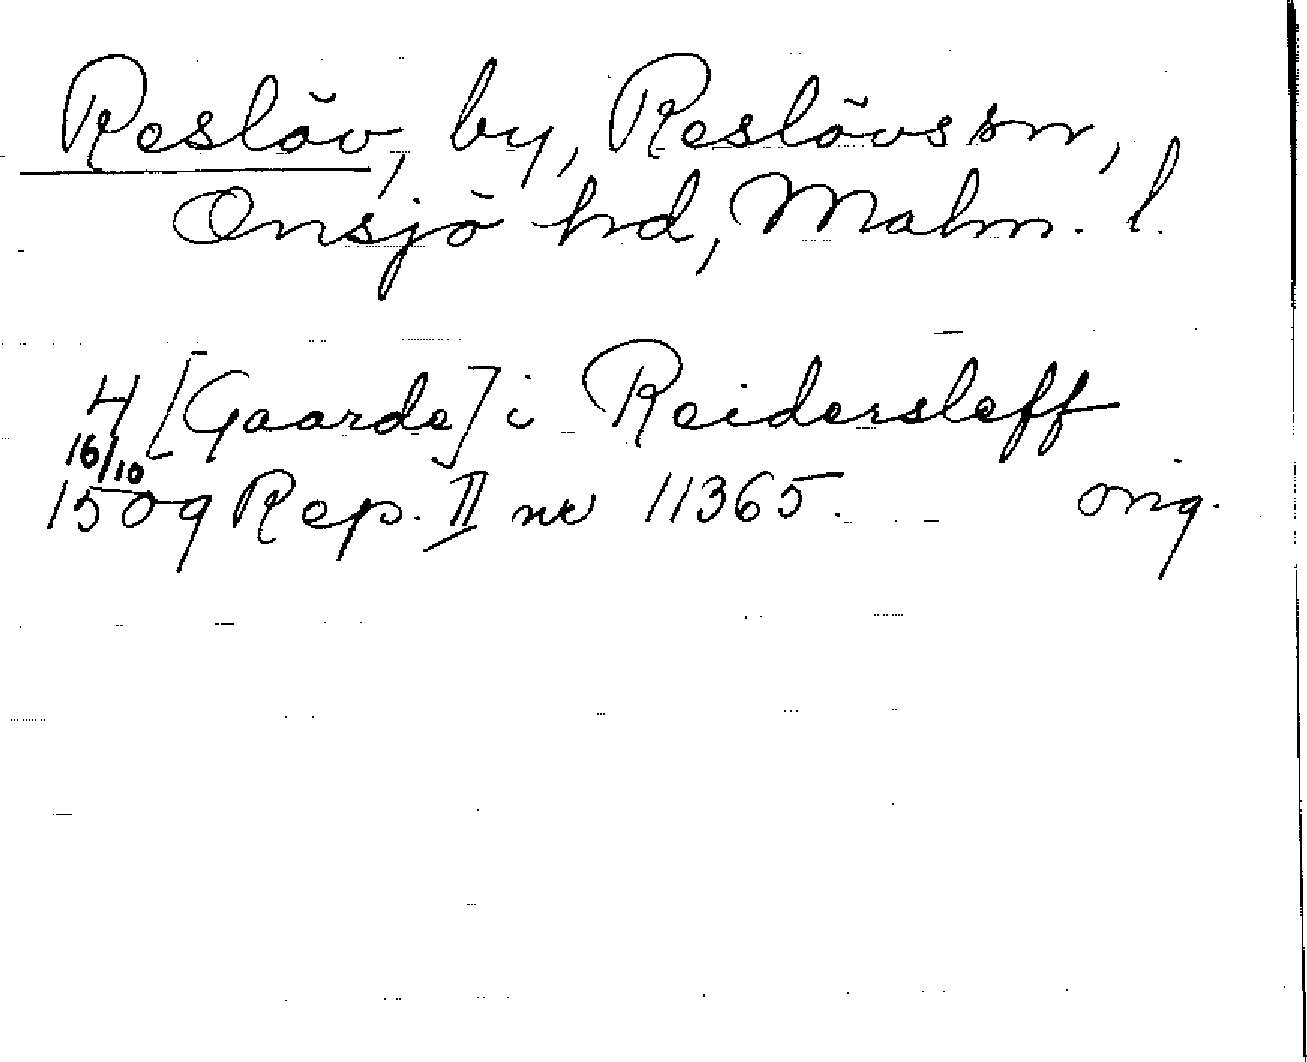 Reslöv, by, Reslövs sn,
Onsjö hd, Malm. l.
4 [Gaarde] i Reidersleff
16/10
1509 Rep. II nr 11365. orig.